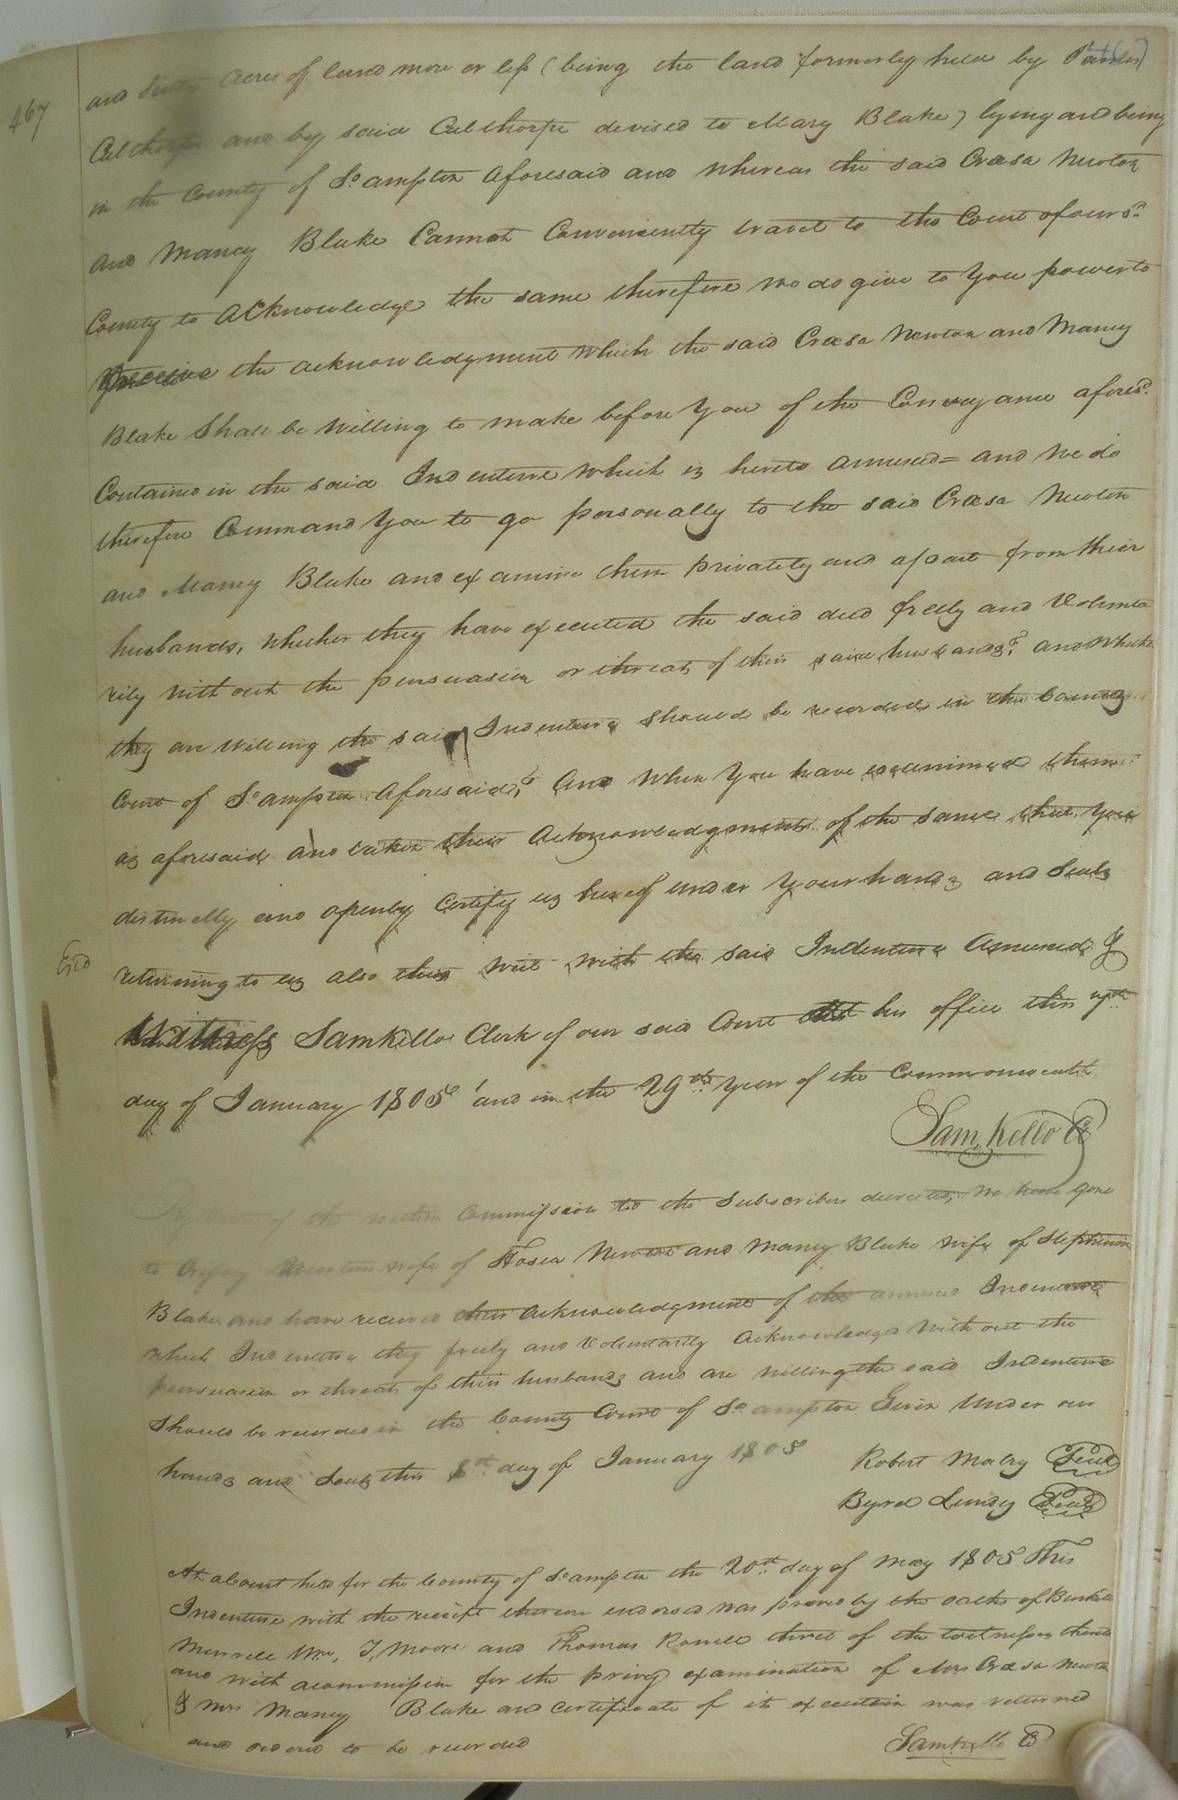 467
and Sixty acres of land more or less (being the land formerly held by
Calthorpe and by said Calthorpe devised to Mary Blake) lying and being
in the County of So.ampton aforesaid and whereas the said Creasa Newton
and Mancy Blake Cannot Conveniently travel to the Court of our sd.
County to acknowledge the same therefore we do give to you power to
receive the acknowledgment which the said Creasa Newton and Mancy
Blake Shall be willing to make before you of the Conveyance aforesd.
Contained in the said Indenture which is hereto annexed = and we do
therefore Command you to go personally to the said Creasa Newton
and Mancy Blake and examine them privately and apart from their
husbands, whether they have executed the said deed freely and Volunta
rily without the persuasion or threats of their said husbands? and whether
they are willing the said Indenture should be recorded in the County
Court of So.ampton aforesaid? And when you have examined them
as aforesaid and taken their acknowledgments of the same that you
distinctly and openly certify us hereof under your hands and Seals
returning to us also this writ with the said Indenture annexed &
Witness Samkello Clerk of our said Court at his office this
day of January 1805 and in the 29th. year of the Commonwealth
Sam. Kello C
of the within Commission to the Subscribers directed, we have gone
to Newton wife of Hosea Newton and Mancy Blake wife of Stephenson
Blake and have received their acknowledgment of the annexed Indenture
which Indenture they freely and Voluntarily acknowledged without the
persuasion or threats of their husbands and are willing the said Indenture
should be recorded in the County Court of So.ampton Given Under our
hands and Seals this 8th. day of January 1805
Robert Mabry Seal
Byrd Lundy Seal
At a Court held for the County of So.ampton the 20th. day of May 1805 This
Indenture with the receipt thereon endorsed was proved by the oaths of
Murrell Wm. T. Moore and Thomas three of the witnesses thereto
and with a commission for the privy examination of Mrs Creasa Newton
& Mrs Mancy Blake and certificate of its execution was returned
and ordered to be recorded
Samkello C